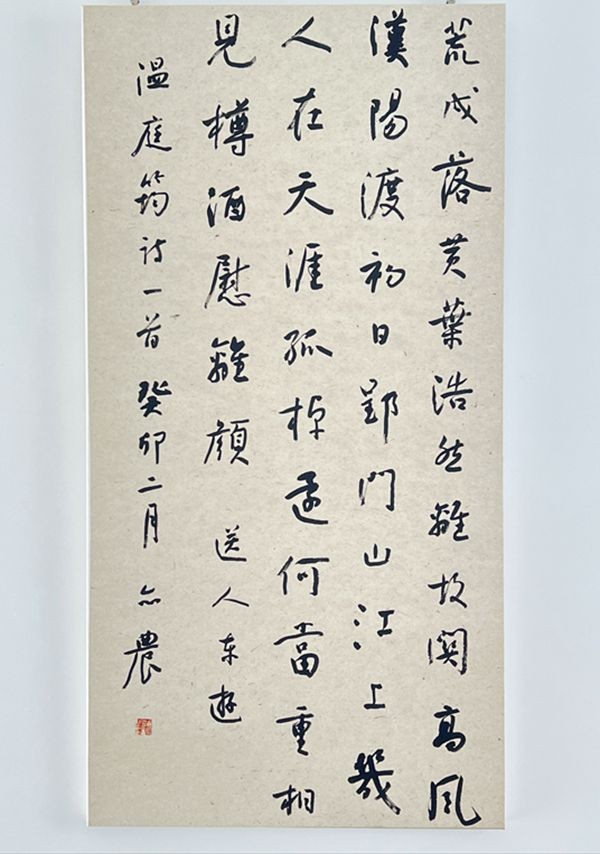 荒戍落黄葉浩然離故関高風
漢陽渡初日郢門山江上幾
人在天涯孤棹還何當重相
見樽酒慰離顔 送人东遊
温庭筠诗一首 癸卯二月 亦農